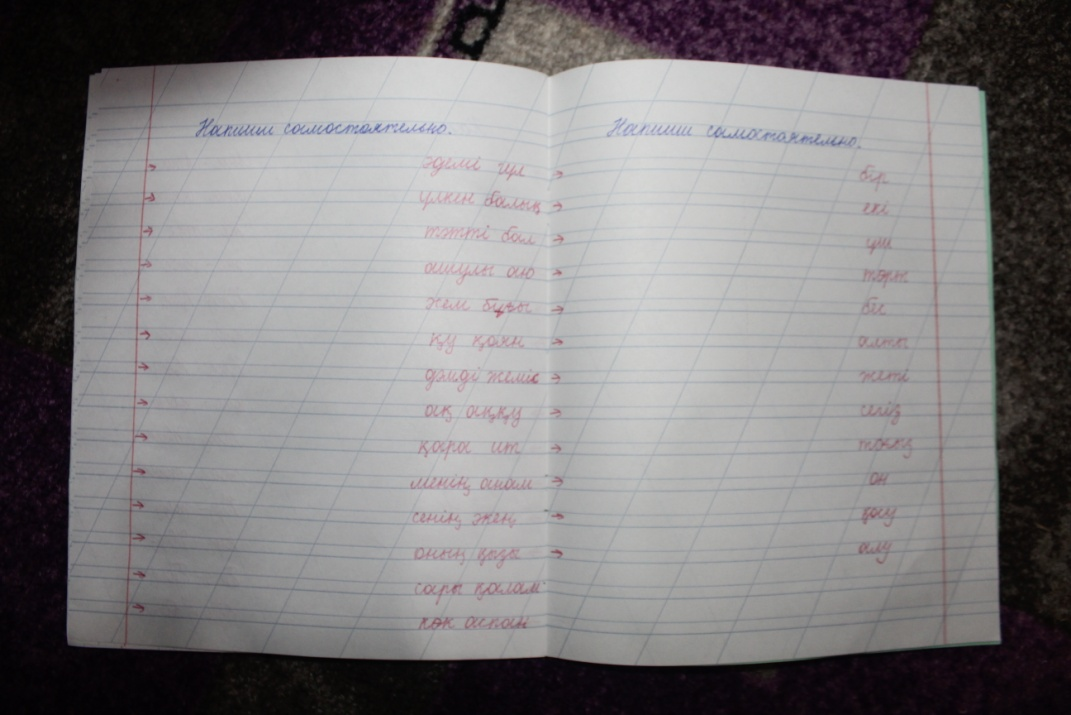 Напиши самостоятельно.
әдемі гүл
үлкен балық
тәтті бал
ашулы аю
жем бұзы
қу қоян
дәмді жеміс
ақ аққу
қара ит
менің анам
сенің әкең
оның қызы
сары қалам
көк аспан
Напиши самостоятельно.
бір
екі
үш
төрт
бес
алты
жеті
сегіз
тоғыз
он
қосу
алу